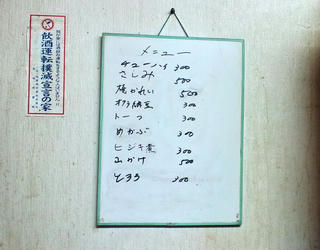 飲酒運転撲滅宣言の家
メニュー
チューハイ 300
さしみ 500
鳩かれい 500
オクラ納豆 300
トーフ 300
めかぶ 300
ヒジキ煮 300
山かけ 500
とろろ 300